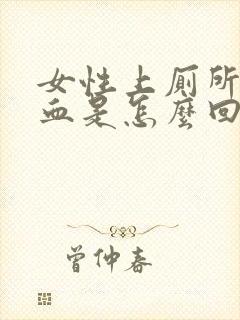 女性上厕所
血是怎麼回
曾仲春